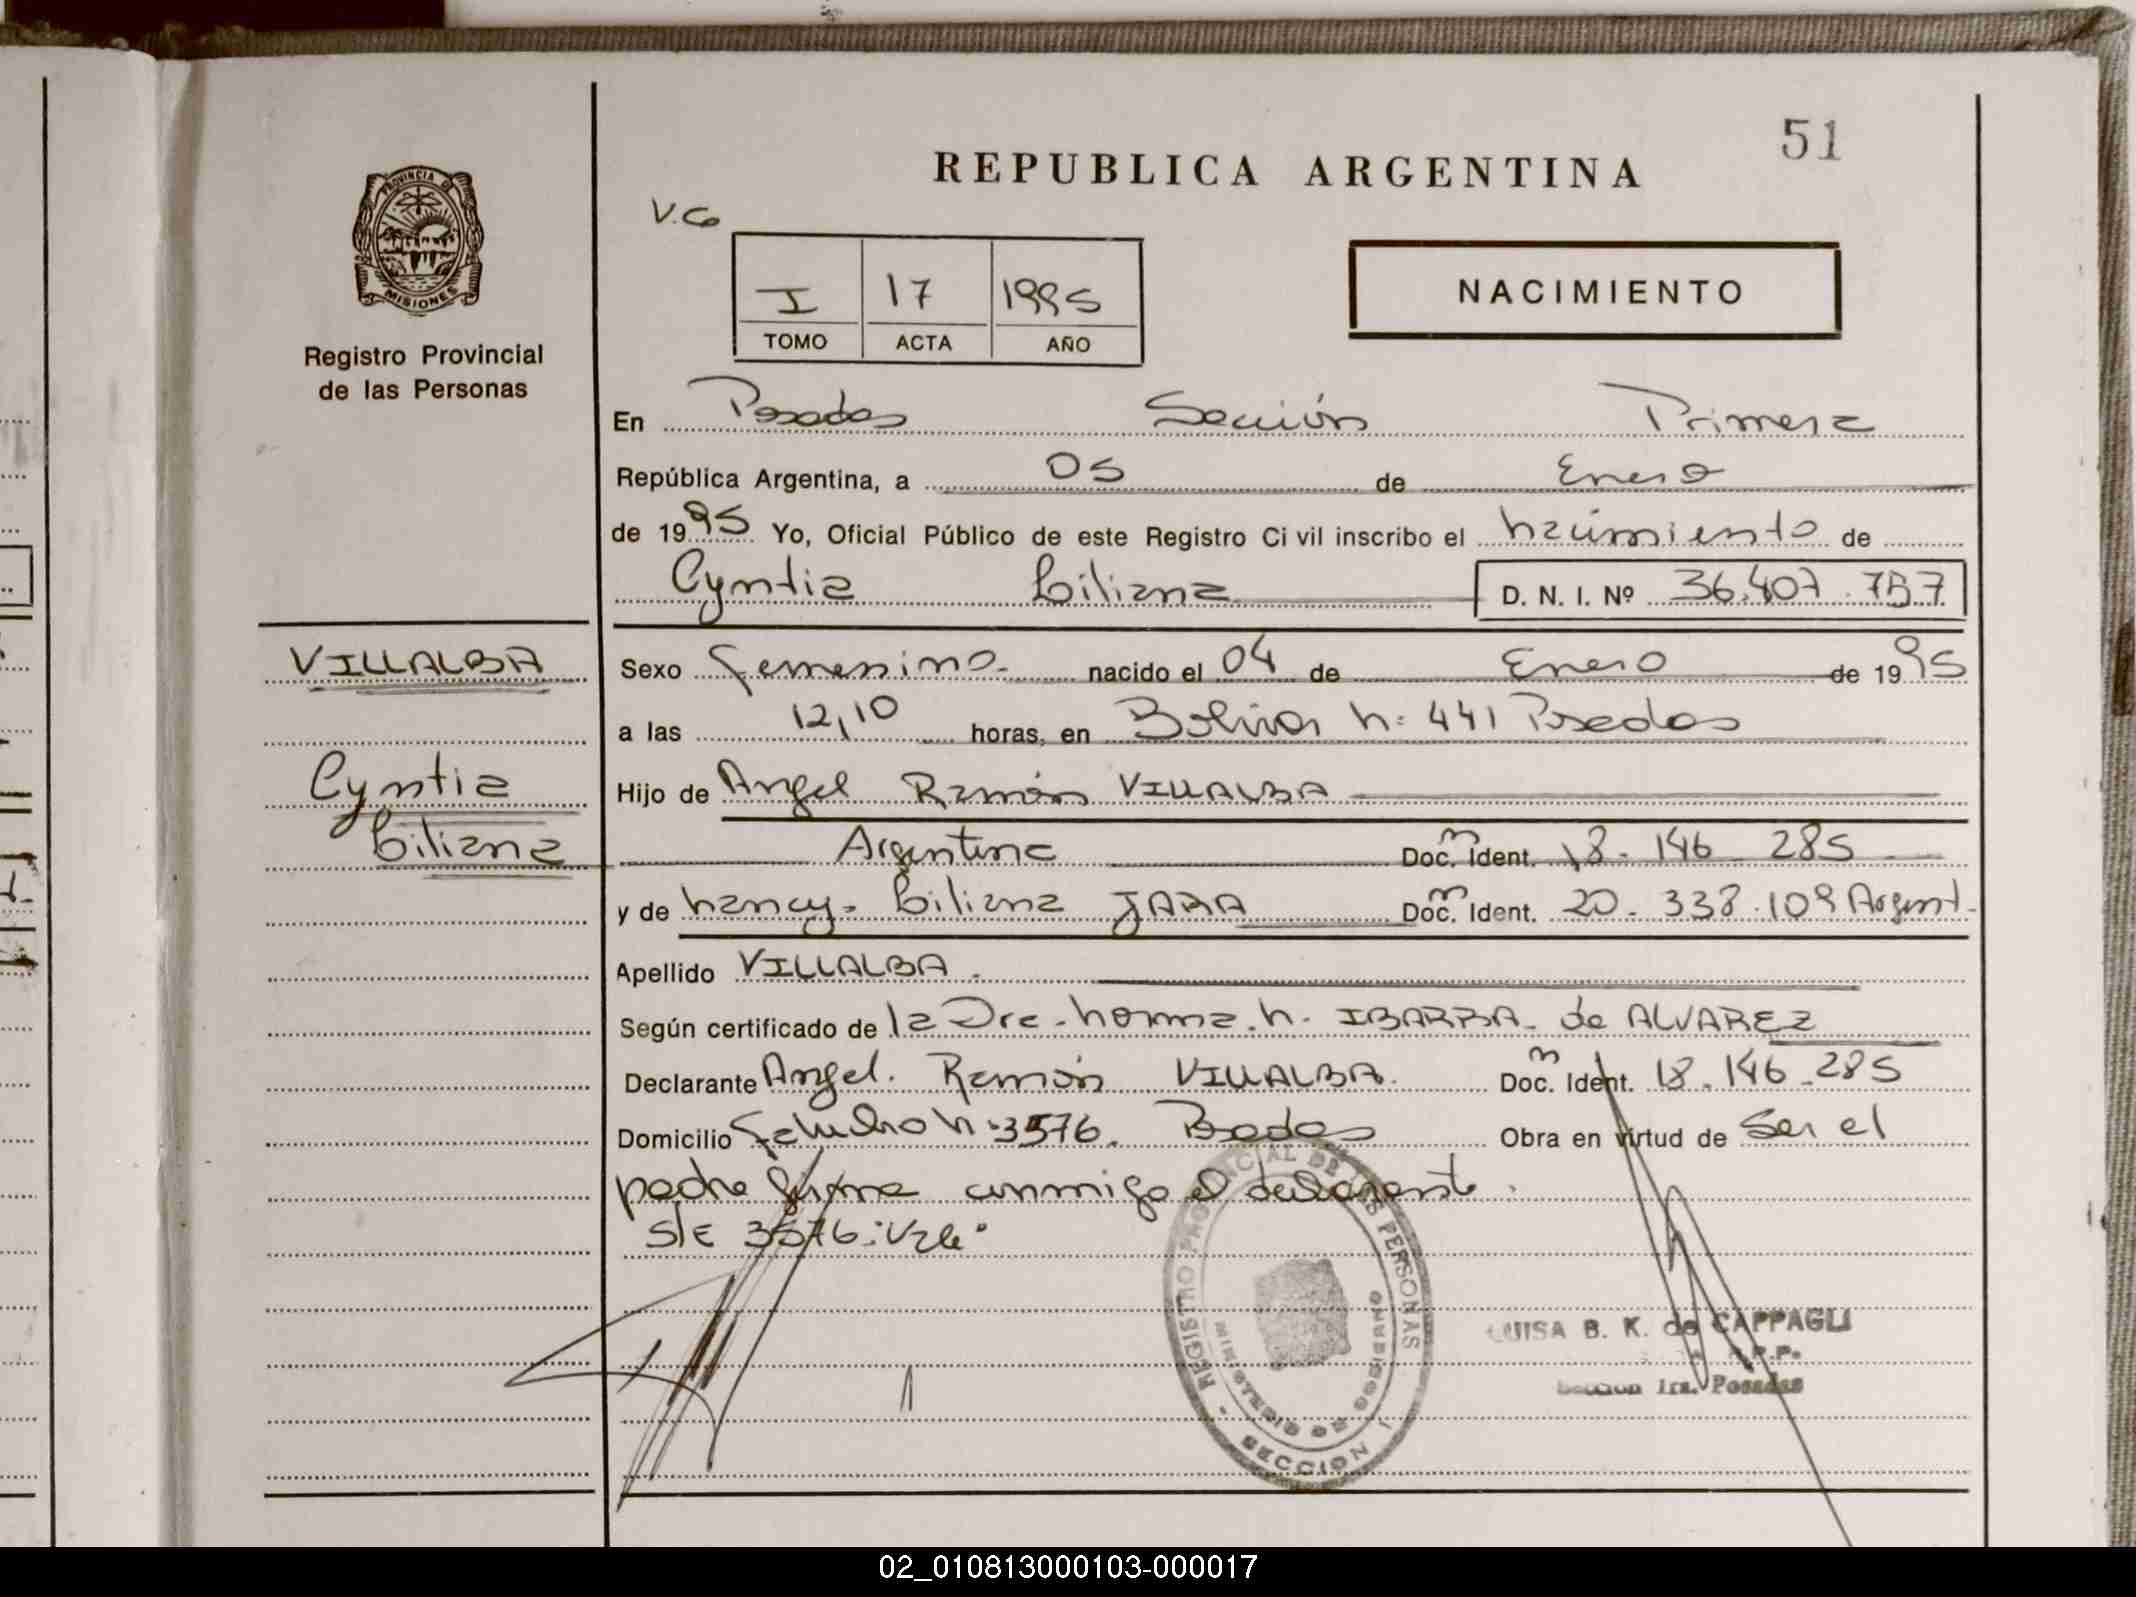 51
REPUBLICA ARGENTINA
PROVINCIA DE
MISIONES
Registro Provincial
de las Personas
V.Co
I 17 1995
TOMO ACTA AÑO
NACIMIENTO
En Posadas Sección Primera
República Argentina, a 05 de Enero
de 1995 Yo, Oficial Público de este Registro Civil inscribo el nacimiento de
Cyntia Liliana D. N. I. Nº 36.407.757
VILLALBA
Cyntia
Liliana
Sexo femenino. nacido el 04 de Enero de 1995
a las 12,10 horas, en Bolivar n: 441 Posadas
Hijo de Angel Ramón VILLALBA
Argentina Doc. Ident. 18.146.285
y de Nancy Liliana JARA Doc. Ident. 20.338.109 Argent.
Apellido VILLALBA.
Según certificado de la Dra. Norma. N. IBARRA de ALVAREZ
Declarante Angel. Ramón VILLALBA. Doc. Ident. 18.146.285
Domicilio N. 3576. Posadas Obra en virtud de Ser el
padre firma conmigo el declarante.
S/E 3576: Vale"
REGISTRO PROVINCIAL DE LAS PERSONAS
MINISTERIO DE GOBIERNO
SECCION I
LUISA B. K. de CAPPAGLI
Sección 1ra. Posadas
02_010813000103-000017